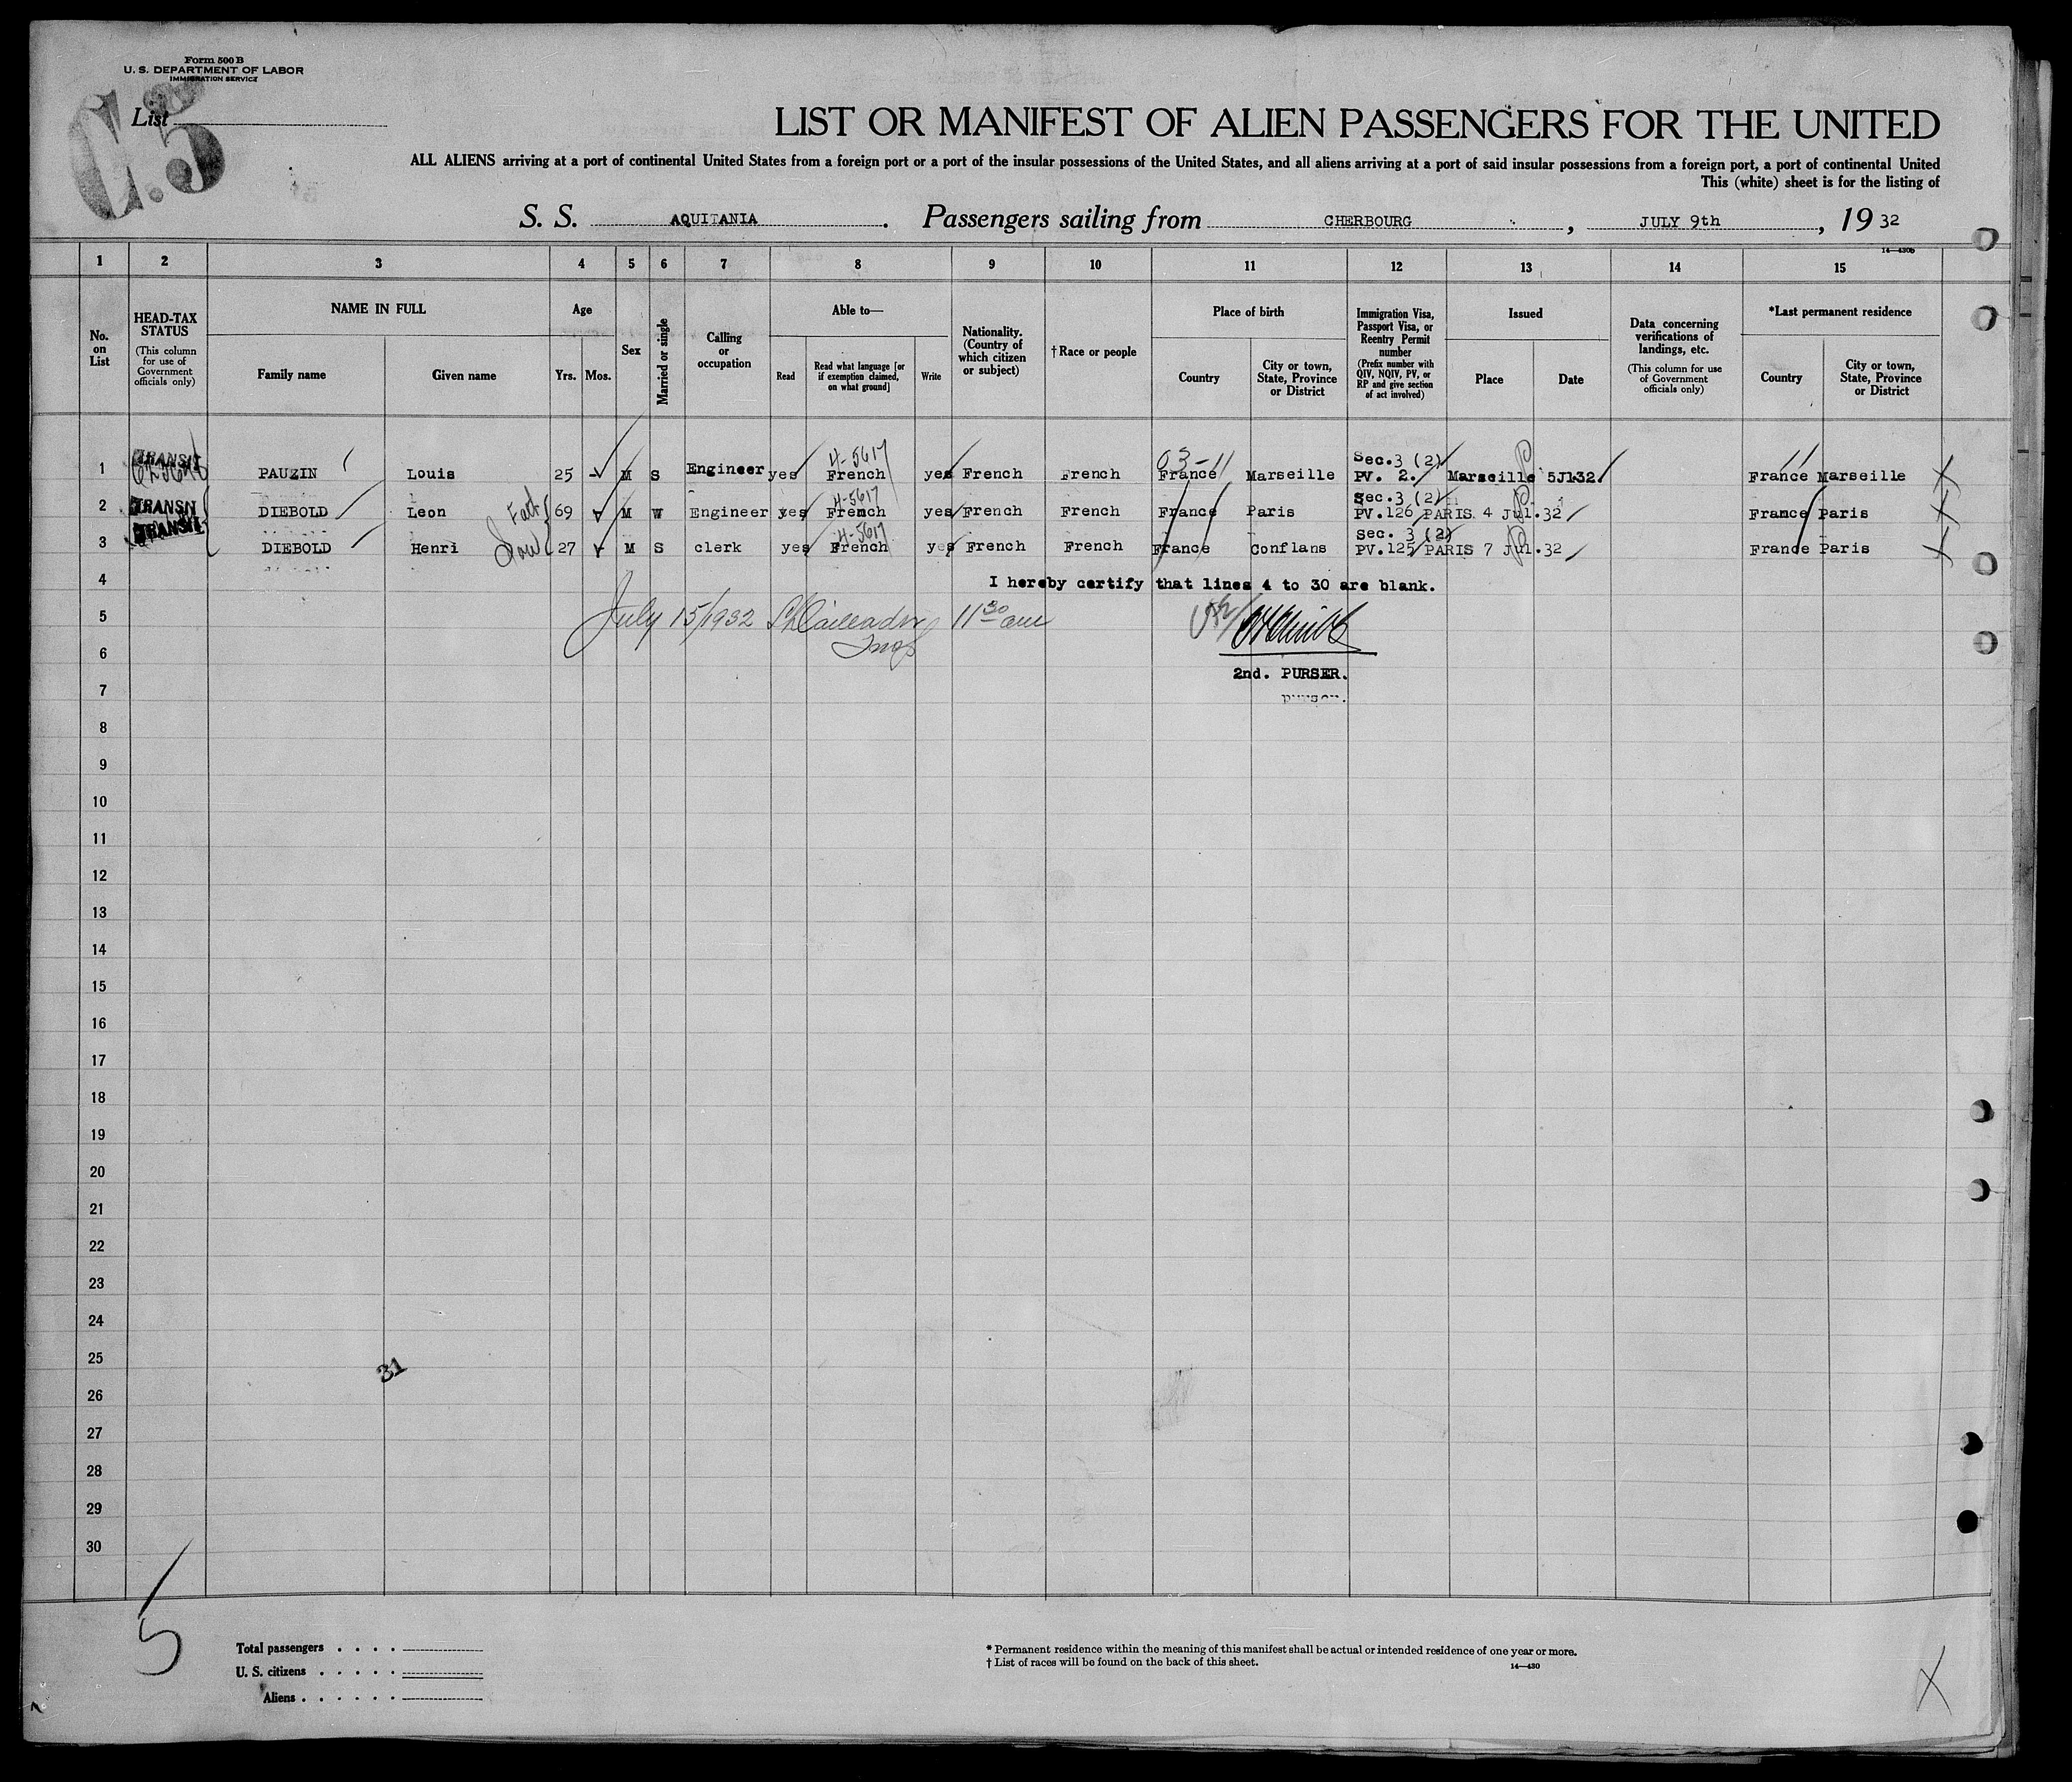 Form 500 B
U. S. DEPARTMENT OF LABOR
IMMIGRATION SERVICE
List
C.5
LIST OR MANIFEST OF ALIEN PASSENGERS FOR THE UNITED
ALL ALIENS arriving at a port of continental United States from a foreign port or a port of the insular possessions of the United States, and all aliens arriving at a port of said insular possessions from a foreign port, a port of continental United
This (white) sheet is for the listing of
S. S. AQUITANIA. Passengers sailing from CHERBOURG, JULY 9th, 1932
14—430b
1 2 3 4 5 6 7 8 9 10 11 12 13 14 15
No. on List
HEAD-TAX STATUS
(This column for use of Government officials only)
NAME IN FULL
Family name
Given name
Age
Yrs. Mos.
Sex
Married or single
Calling or occupation
Able to—
Read
Read what language [or if exemption claimed, on what ground]
Write
Nationality. (Country of which citizen or subject)
† Race or people
Place of birth
Country
City or town, State, Province or District
Immigration Visa, Passport Visa, or Reentry Permit number
(Prefix number with QIV, NQIV, PV, or RP and give section of act involved)
Issued
Place
Date
Data concerning verifications of landings, etc.
(This column for use of Government officials only)
*Last permanent residence
Country
City or town, State, Province or District
4-5617
03-11
11
Sec.3 (2)
1 TRANSIT PAUZIN Louis 25 M S Engineer yes French yes French French France Marseille PV. 2. Marseille 5Jl32. France Marseille X
4-5617
Sec.3 (2)
2 TRANSIT DIEBOLD Leon 69 M W Engineer yes French yes French French France Paris PV.126 PARIS 4 Jul.32 France Paris X
4-5617
Sec. 3 (2)
3 TRANSIT DIEBOLD Henri 27 M S clerk yes French yes French French France Conflans PV.125 PARIS 7 Jul.32 France Paris X
4 I hereby certify that lines 4 to 30 are blank.
5 July 15/1932 11 30 am
6
2nd. PURSER.
7
purser.
8
9
10
11
12
13
14
15
16
17
18
19
20
21
22
23
24
25
31
26
27
28
29
30
5
Total passengers . . . .
U. S. citizens . . . . .
Aliens . . . . . .
* Permanent residence within the meaning of this manifest shall be actual or intended residence of one year or more.
† List of races will be found on the back of this sheet.
14—430
X